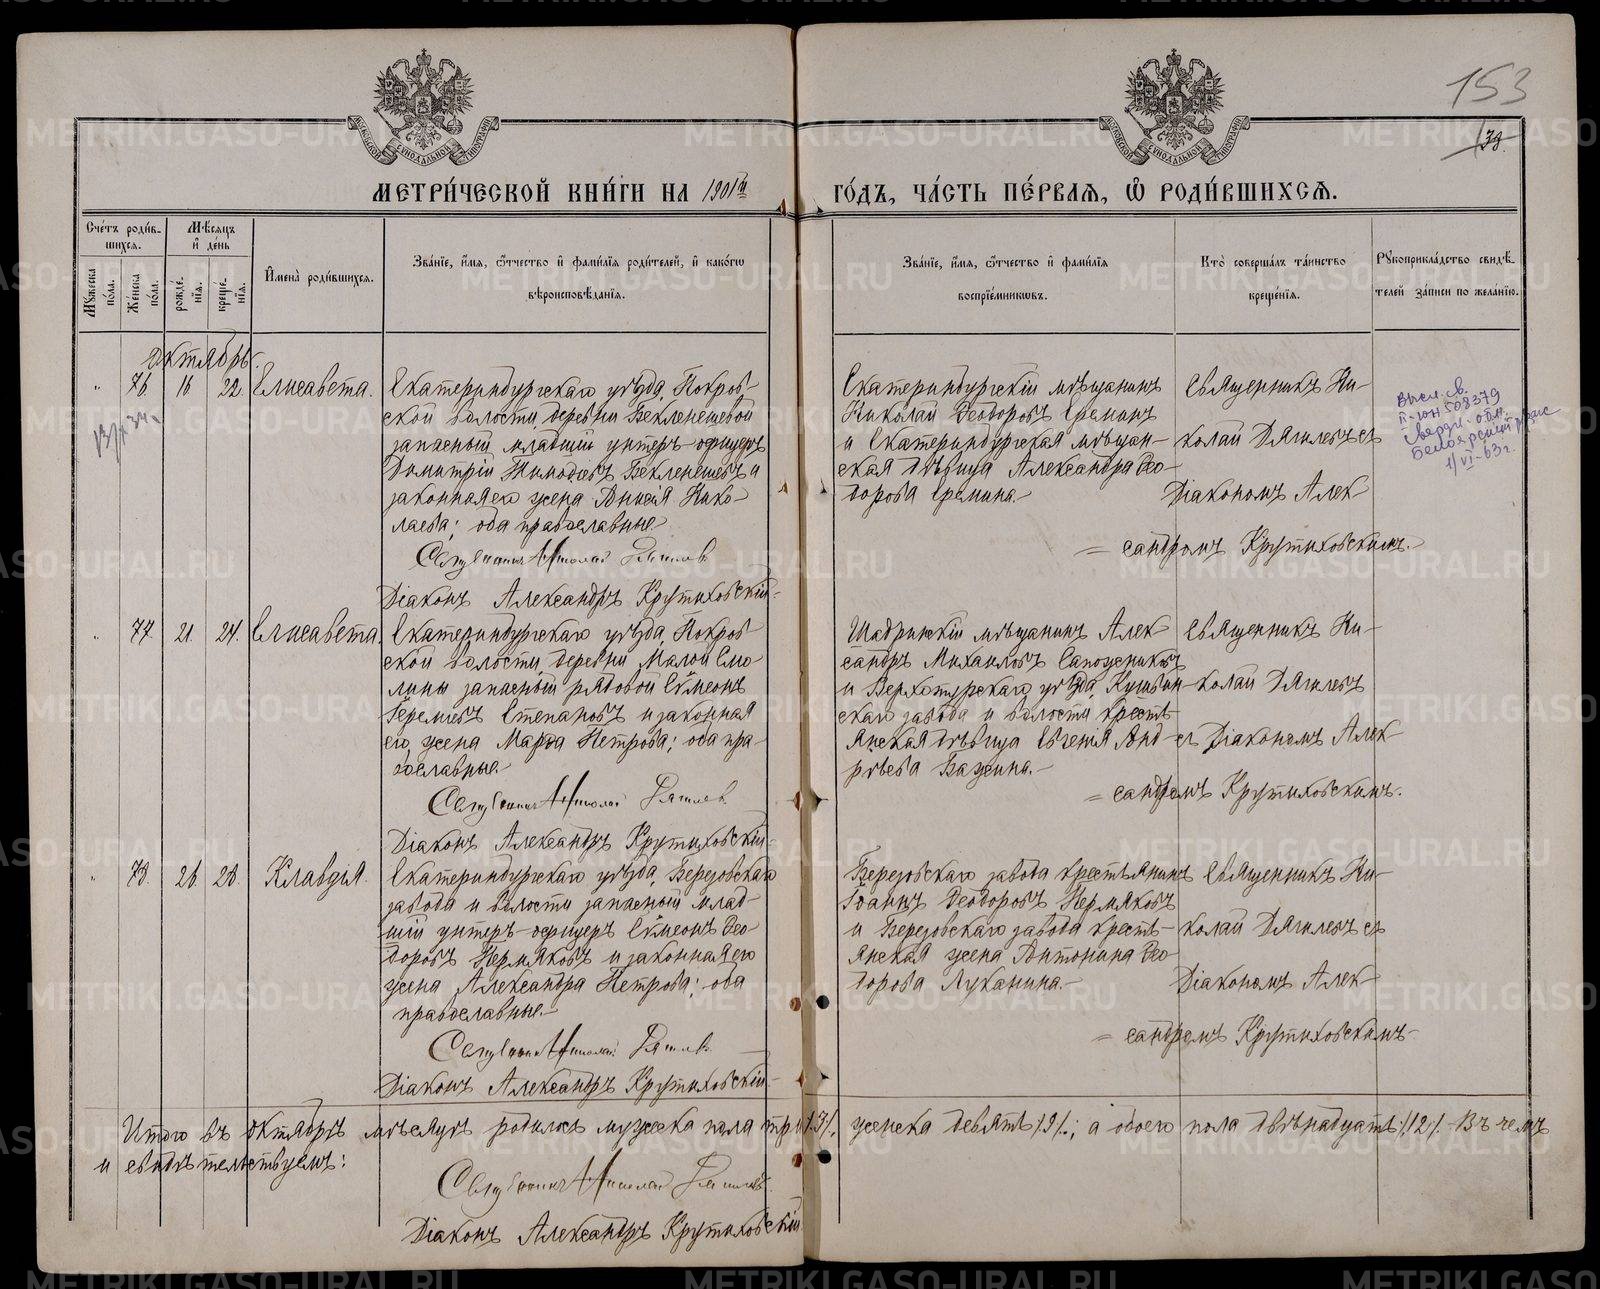 153
МЕТРИ́ЧЕСКОЙ КНИ́ГИ НА 1901й ГО́ДЪ, ЧА́СТЬ ПЕ́РВАЯ, Ѽ РОДИ́ВШИХСѦ.
Сче́тъ роди́в-
шихсѧ.
Мꙋ́жеска по́ла.
Же́нска по́ла.
Мѣ́сѧцъ
и҆ де́нь
рожде́-
нїѧ.
креще́-
нїѧ.
И҆мена̀ роди́вшихсѧ.
Зва́нїе, и҆́мѧ, ѻ҆́тчество и҆ фами́лїѧ роди́телей, и҆ како́гѡ
вѣроисповѣ́данїѧ.
Зва́нїе, и҆́мѧ, ѻ҆́тчество и҆ фами́лїѧ
воспрїе́мникѡвъ.
Кто̀ соверша́лъ та́инство
креще́нїѧ.
Рꙋкоприкла́дство свидѣ́-
телей за́писи по жела́нїю.
Октябрь.
76. 16 22. Елисавета.
Екатеринбургскаго уѣзда, Покров-
ской волости, деревни Бекленещевой
запасный младшій унтеръ-офицеръ
Димитрій Тимоѳеевъ Бекленещевъ и
законная его жена Анисія Нико-
лаева; оба православные.
Священникъ Николай Дягилев.
Діаконъ Александръ Крутиховскій.
Екатеринбургскій мѣщанинъ
Николай Ѳеодоровъ Ереминъ
и Екатеринбургская мѣщан-
ская дѣвица Александра Ѳео-
дорова Еремина.
Священникъ Ни-
колай Дягилевъ съ
Діакономъ Алек-
сандромъ Крутиховскимъ.
выс. св.
508379
Белоярский
1/VI-63г.
77. 21. 24. Елисавета.
Екатеринбургскаго уѣзда, Покров-
ской волости, деревни Малой Смо-
лины запасный рядовой Сѵмеонъ
Іеремеевъ Степановъ и законная
его жена Марѳа Петрова; оба пра-
вославные.
Священникъ Николай Дягилев.
Діаконъ Александръ Крутиховскій.
Шадринскій мѣщанинъ Алек-
сандръ Михаиловъ Сапожниковъ
и Верхотурскаго уѣзда, Кушвин-
скаго завода и волости кресть-
янская дѣвица Евгенія Анд-
реева Бажина.
Священникъ Ни-
колай Дягилевъ
съ Діакономъ Алек-
сандромъ Крутиховскимъ.
78. 26. 28. Клавдія.
Екатеринбургскаго уѣзда, Березовскаго
завода и волости запасный млад-
шій унтеръ-офицеръ Сѵмеонъ Ѳео-
доровъ Пермяковъ и законная его
жена Александра Петрова; оба
православные.
Священникъ Николай Дягилев.
Діаконъ Александръ Крутиховскій.
Березовскаго завода крестьянинъ
Іоаннъ Ѳеодоровъ Пермяковъ
и Березовскаго завода кресть-
янская жена Антонина Ѳео-
дорова Луканина.
Священникъ Ни-
колай Дягилевъ съ
Діакономъ Алек-
сандромъ Крутиховскимъ.
Итого въ октябрѣ мѣсяцѣ родилось мужеска пола три /3/, женска девять /9/; а обоего пола двѣнадцать /12/. Въ чемъ
и свидѣтельствуемъ:
Священникъ Николай Дягилевъ.
Діаконъ Александръ Крутиховскій
METRIKI.GASO-URAL.RU